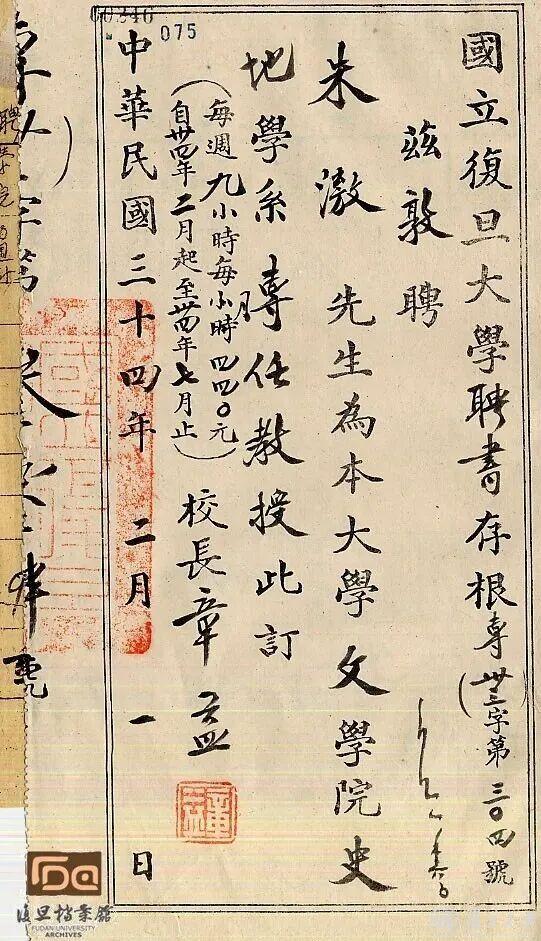 00346
075
國立復旦大學聘書存根專(卅三字第三〇四號)
茲敦聘
朱澂 先生為本大學文學院史
地學系專任教授此訂
(每週九小時每小時月四四〇元
自卅四年二月起至卅四年七月止)
校長章益
中華民國三十四年二月一日
復旦檔案館
FUDAN UNIVERSITY
ARCHIVES